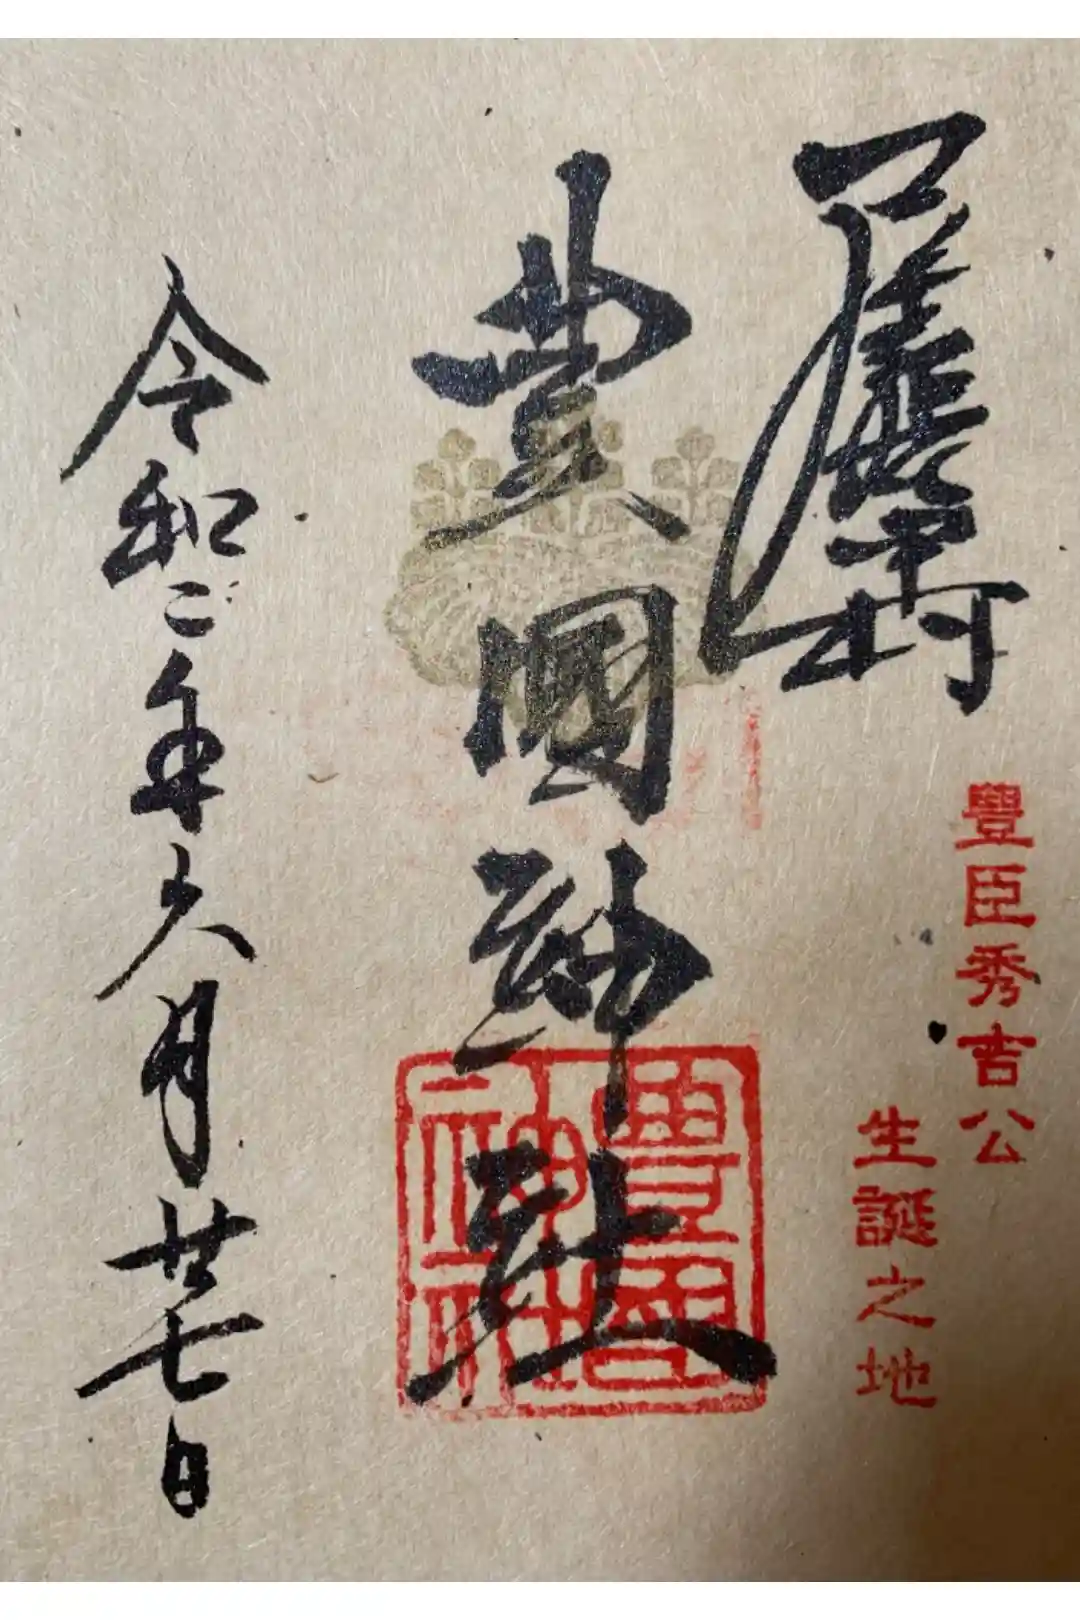 豐臣秀吉公
生誕之地
豊國神社
豊國神社
令和二年六月廿七日